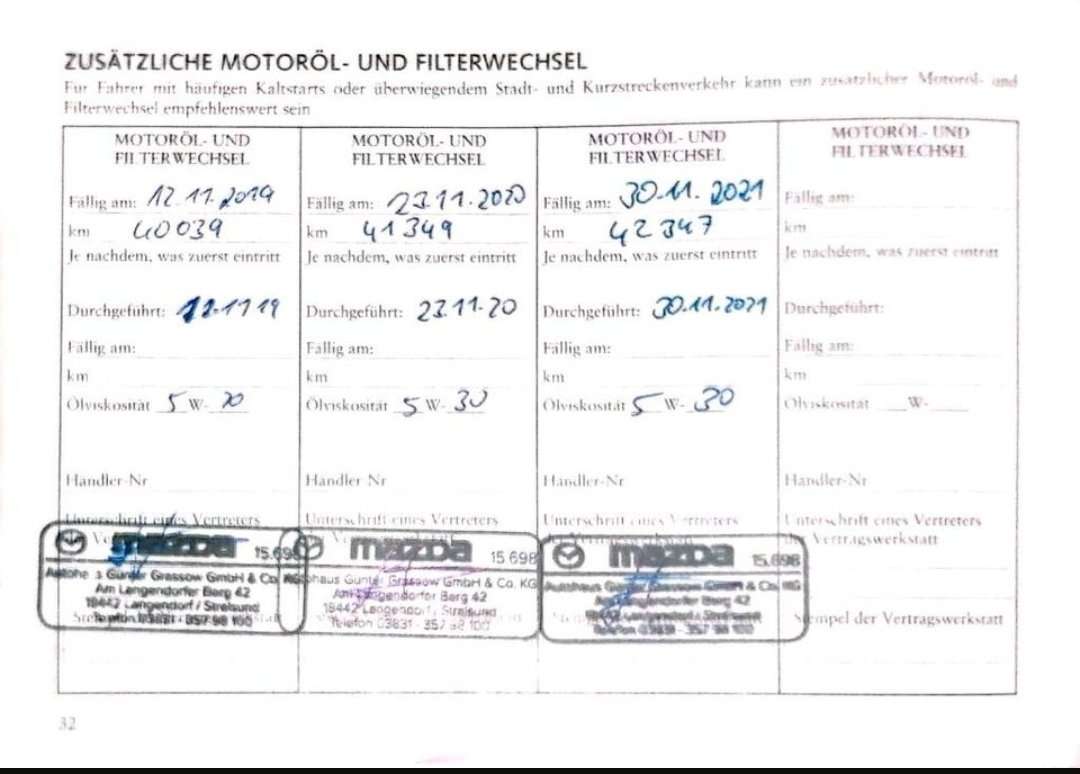 ZUSÄTZLICHE MOTORÖL- UND FILTERWECHSEL
Für Fahrer mit häufigen Kaltstarts oder überwiegendem Stadt- und Kurzstreckenverkehr kann ein zusätzlicher Motoröl- und
Filterwechsel empfehlenswert sein
MOTORÖL- UND
FILTERWECHSEL
Fällig am: 12.11.2019
km 40039
Je nachdem, was zuerst eintritt
Durchgeführt: 12.11 19
Fällig am:
km
Ölviskosität 5 W- 30
Händler-Nr
Unterschrift eines Vertreters
mazda 15.698
Günter Grassow GmbH & Co. KG
Am Langendorfer Berg 42
18442 Langendorf / Stralsund
Telefon 03831 - 357 98 100
MOTORÖL- UND
FILTERWECHSEL
Fällig am: 23.11.2020
km 41349
Je nachdem, was zuerst eintritt
Durchgeführt: 23.11.20
Fällig am:
km
Ölviskosität 5 W- 30
Händler Nr
Unterschrift eines Vertreters
mazda 15 698
Autohaus Günter Grassow GmbH & Co. KG
Am Langendorfer Berg 42
18442 Langendorf / Stralsund
Telefon 03831 - 357 98 100
MOTORÖL- UND
FILTERWECHSEL
Fällig am: 30.11.2021
km 42347
Je nachdem, was zuerst eintritt
Durchgeführt: 30.11.2021
Fällig am:
km
Ölviskosität 5 W- 30
Händler-Nr
Unterschrift eines Vertreters
mazda 15.698
Autohaus Günter Grassow GmbH & Co. KG
Am Langendorfer Berg 42
18442 Langendorf / Stralsund
Telefon 03831 - 357 98 100
MOTORÖL- UND
FILTERWECHSEL
Fällig am:
km
Je nachdem, was zuerst eintritt
Durchgeführt:
Fällig am:
km
Ölviskosität ___W-____
Händler-Nr
Unterschrift eines Vertreters
der Vertragswerkstatt
Stempel der Vertragswerkstatt
32